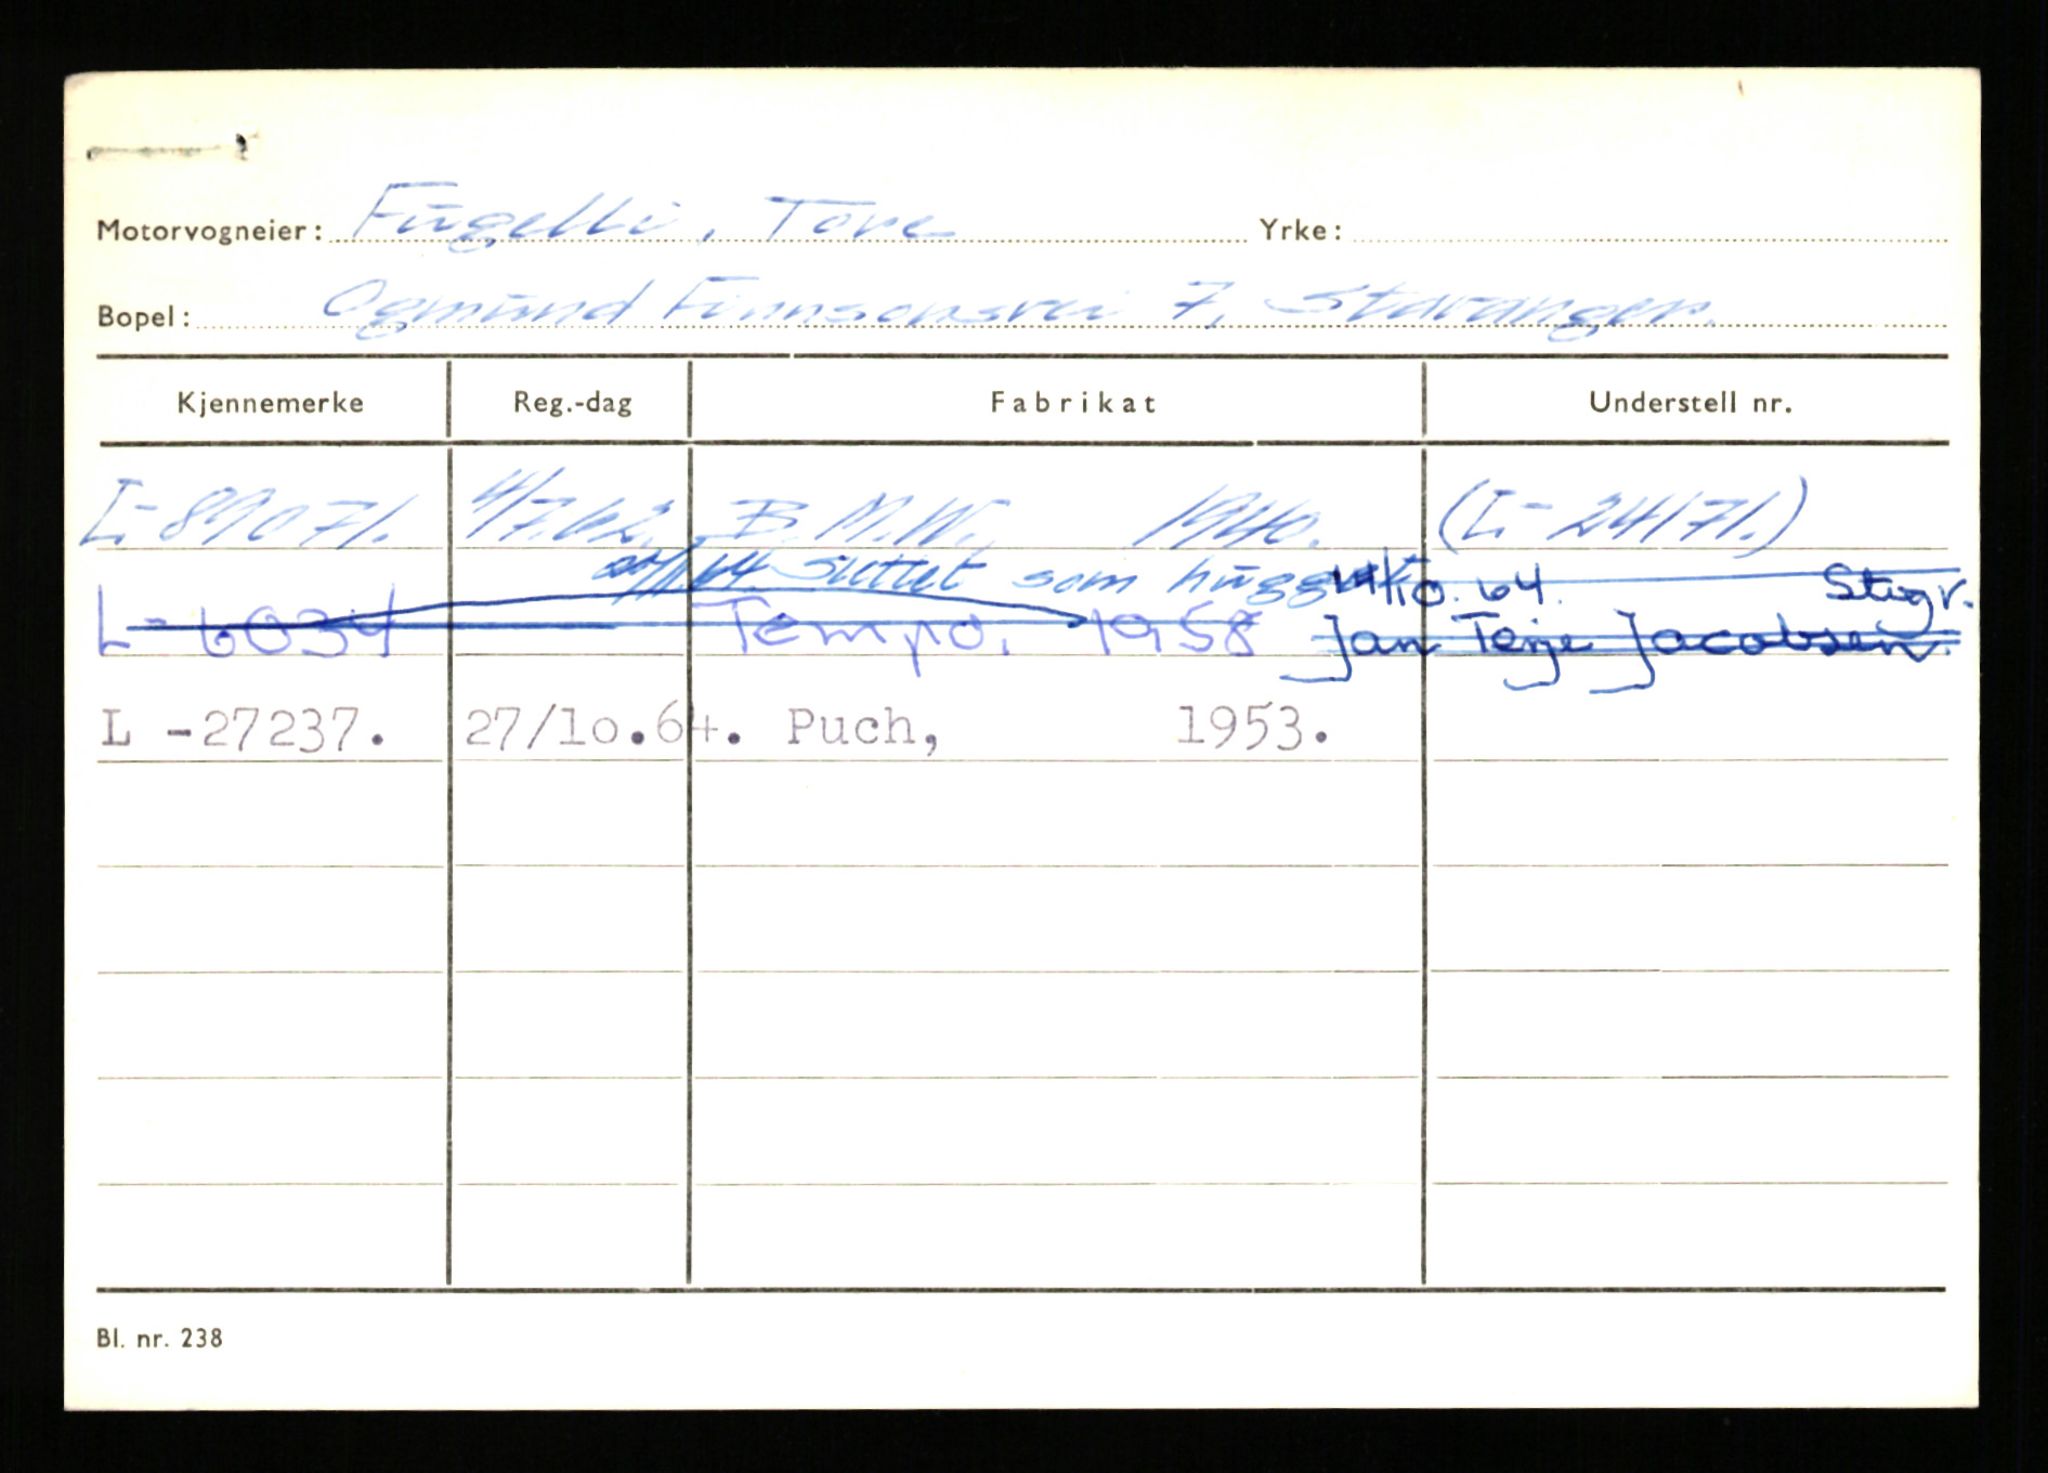 Motorvogneier: Fugelli, Tore Yrke:
Bopel: Ogmund Finnsonsvei 7, Stavanger.
Kjennemerke Reg.-dag Fabrikat Understell nr.
L-89071. 4/7.62. B.M.W. 1940. (L-24171.)
som 14/10.64. Stigr.
L-6034 Tempo. 1958 Jan Terje Jacobsen.
L -27237. 27/10.64. Puch, 1953.
Bl. nr. 238